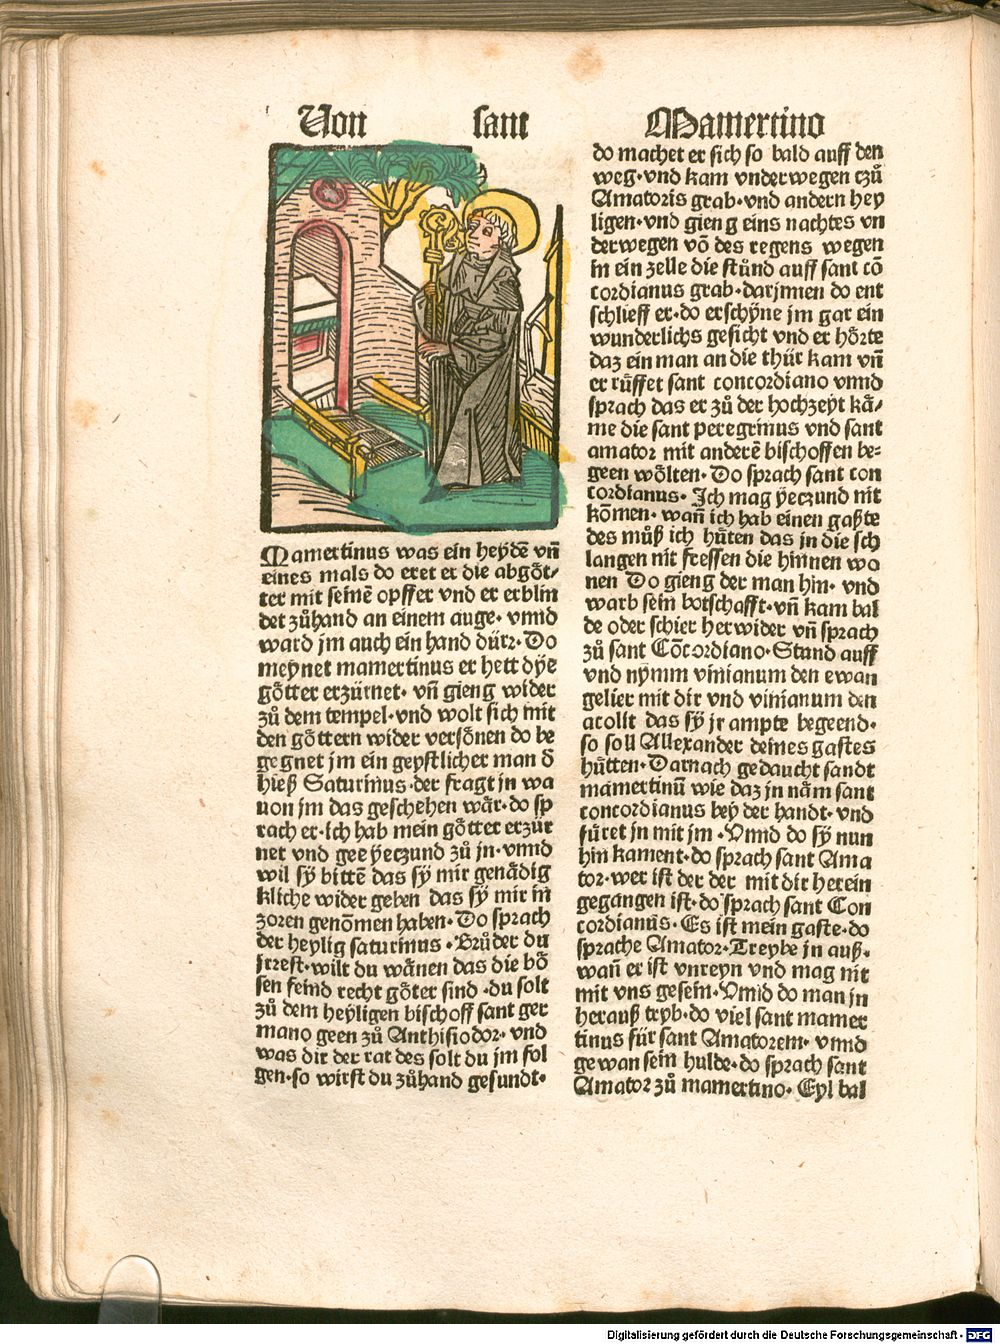 Von sant Mamertino
Mamertinus was ein heydē vñ
eines mals do eret er die abgöt⸗
ter mit seinē opffer vnd er erblin
det zůhand an einem auge. vnnd
ward jm auch ein hand dürr. Do
meynet mamertinus er hett dÿe
götter erzürnet. vñ gieng wider
zů dem tempel. vnd wolt sich mit
den göttern wider versönen do be
gegnet jm ein geystlicher man ð
hieß Saturinus. der fragt jn wa
uon jm das geschehen wär. do sp
rach er. ich hab mein götter erzür
net vnd gee yeczund zů jn. vnnd
wil sÿ bittē das sÿ mir genådig
kliche wider geben das sÿ mir in
zoren genōmen haben. Do sprach
der heylig saturinus. Brůder du
jrrest. wilt du wånen das die bö
sen feind recht göter sind. du solt
zů dem heyligen bischoff sant ger
mano geen zů Anthisiodor. vnd
was dir der rat des solt du jm fol
gen. so wirst du zůhand gesundt.
do machet er sich so bald auff den
weg. vnd kam vnderwegen czů
Amatoris grab. vnd andern hey
ligen. vnd gieng eins nachtes vn
derwegen vō des regens wegen
in ein zelle die stůnd auff sant cō
cordianus grab. darjnnen do ent
schlieff er. do erschÿne jm gar ein
wunderlichs gesicht vnd er hörte
daz ein man an die thür kam vñ
er růffet sant concordiano vnnd
sprach das er zů der hochzeyt kä⸗
me die sant peregrinus vnd sant
amator mit anderē bischoffen be⸗
geen wölten. Do sprach sant con
cordianus. Ich mag yeczund nit
kōmen. wañ ich hab einen gaßte
des můß ich hůten das in die sch
langen nit fressen die hinnen wo
nen Do gieng der man hin. vnd
warb sein botschafft. vñ kam bal
de oder schier herwider vñ sprach
zů sant Cōcordiano. Stand auff
vnd nÿmm vinianum den ewan
gelier mit dir vnd vinianum den
acolit das sÿ jr ampte begeend.
so soll Allexander deines gastes
hůtten. Darnach gedaucht sandt
mamertinū wie daz jn näm sant
concordianus bey der handt. vnd
fůret jn mit jm. Vnnd do sÿ nun
hin kament. do sprach sant Ama
tor. wer ist der der mit dir herein
gegangen ist. do sprach sant Con
cordianus. Es ist mein gaste. do
sprache Amator. Treybe jn auß.
wañ er ist vnreyn vnd mag nit
mit vns gesein. Vnnd do man jn
herauß tryb. do viel sant mamer
tinus für sant Amatorem. vnnd
gewan sein hulde. do sprach sant
Amator zů mamertino. Eyl bal
Digitalisierung gefördert durch die Deutsche Forschungsgemeinschaft - DFG